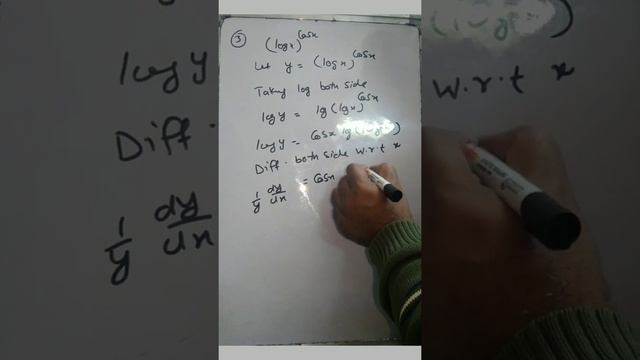 ③ (logx)^cosx
Let y = (logx)^cosx
Taking log both side
log y = log (logx)^cosx
log y = cosx log (logx)
Diff. both side w.r.t x
1/y dy/dx = cosx